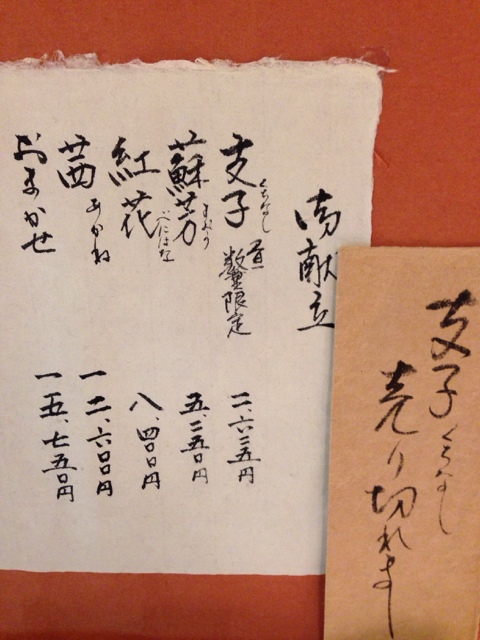 御献立
支子 くちなし 数量限定 二、六二五円
蘇芳 すおう 五、二五〇円
紅花 べにばな 八、四〇〇円
茜 あかね 一二、六〇〇円
おまかせ 一五、七五〇円
支子 くちなし
売り切れまし